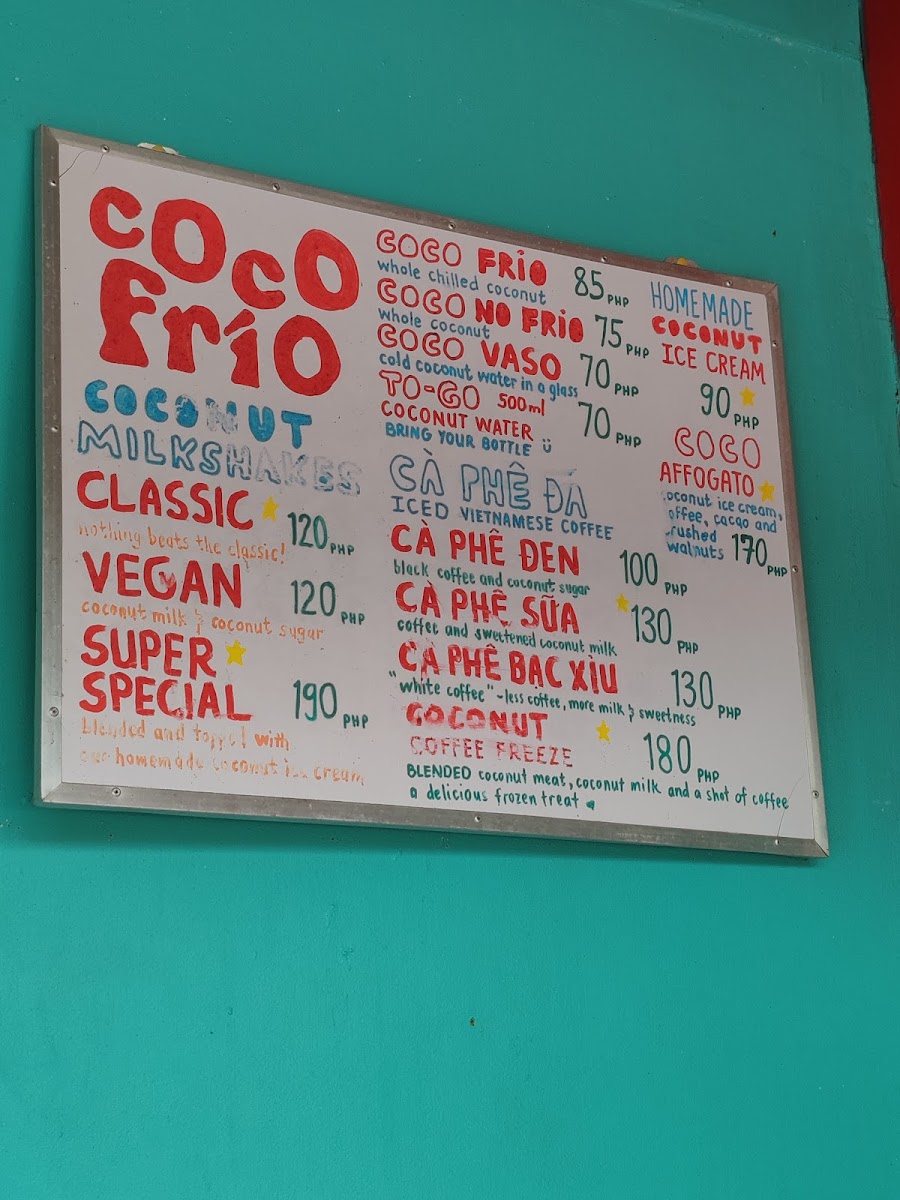 coco
Frío
COCONUT
MILKSHAKES
CLASSIC 120 PHP
nothing beats the classic!
VEGAN 120 PHP
coconut milk & coconut sugar
SUPER
SPECIAL 190 PHP
blended and topped with
our homemade coconut ice cream
COCO FRIO 85 PHP
whole chilled coconut
COCO NO FRIO 75 PHP
whole coconut
COCO VASO 70 PHP
cold coconut water in a glass
TO-GO 500ml 70 PHP
COCONUT WATER
BRING YOUR BOTTLE
CÀ PHÊ ĐÁ
ICED VIETNAMESE COFFEE
CÀ PHÊ ĐEN 100 PHP
black coffee and coconut sugar
CÀ PHÊ SỮA 130 PHP
coffee and sweetened coconut milk
CÀ PHÊ BẠC XỈU 130 PHP
"white coffee" - less coffee, more milk & sweetness
COCONUT
COFFEE FREEZE 180 PHP
BLENDED coconut meat, coconut milk and a shot of coffee
a delicious frozen treat
HOMEMADE
COCONUT
ICE CREAM
90 PHP
COCO
AFFOGATO
coconut ice cream,
coffee, cacao and
crushed
walnuts 170 PHP